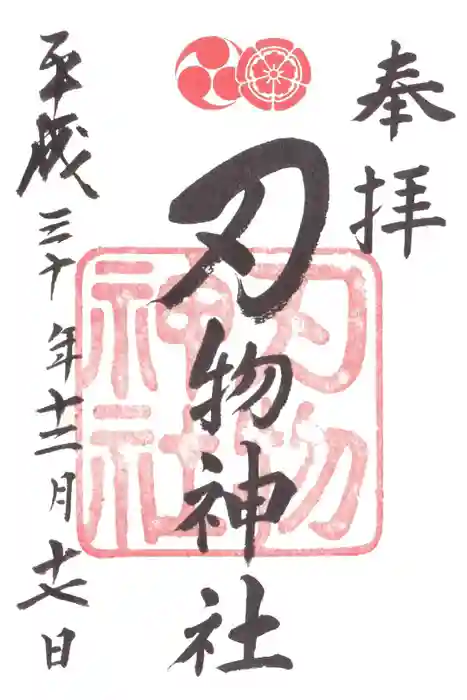 奉拝
刃物神社
平成三十年十二月十七日
刃物
神社